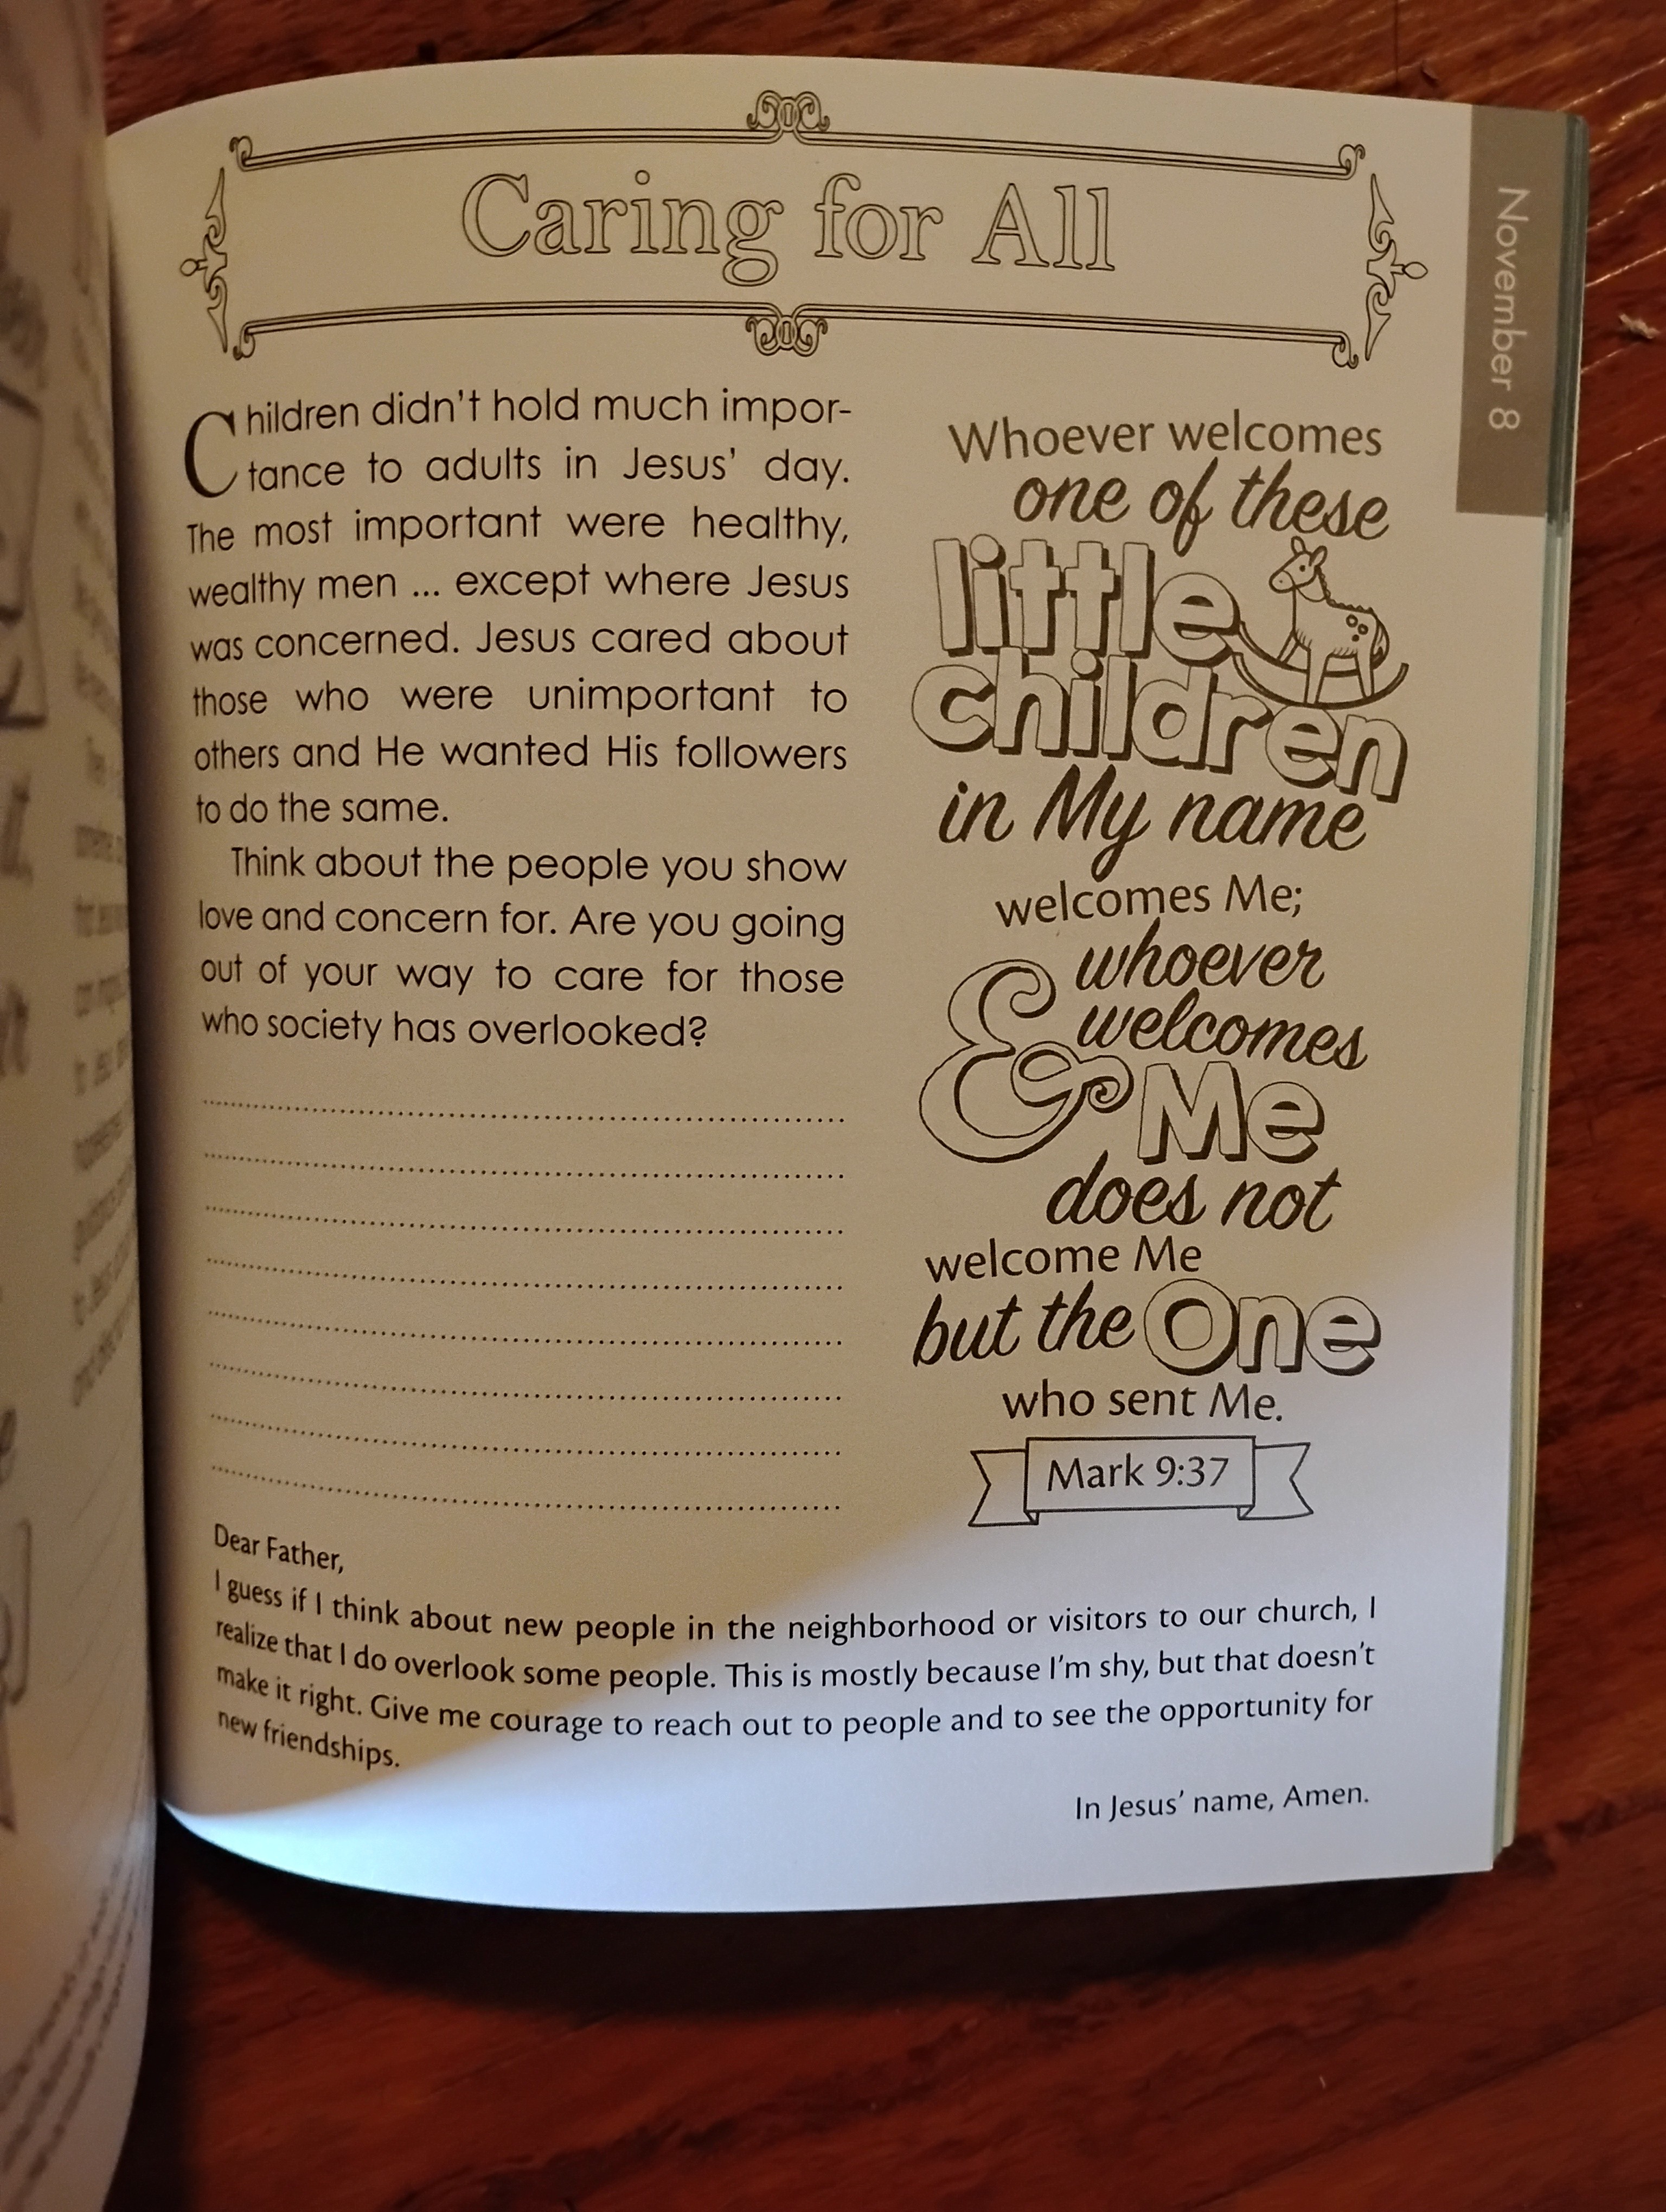 Caring for All
November 8
Children didn't hold much impor-
tance to adults in Jesus' day.
The most important were healthy,
wealthy men ... except where Jesus
was concerned. Jesus cared about
those who were unimportant to
others and He wanted His followers
to do the same.
Think about the people you show
love and concern for. Are you going
out of your way to care for those
who society has overlooked?
Whoever welcomes
one of these
little
children
in My name
welcomes Me;
& whoever
welcomes
Me
does not
welcome Me
but the One
who sent Me.
Mark 9:37
Dear Father,
I guess if I think about new people in the neighborhood or visitors to our church, I
realize that I do overlook some people. This is mostly because I'm shy, but that doesn't
make it right. Give me courage to reach out to people and to see the opportunity for
new friendships.
In Jesus' name, Amen.